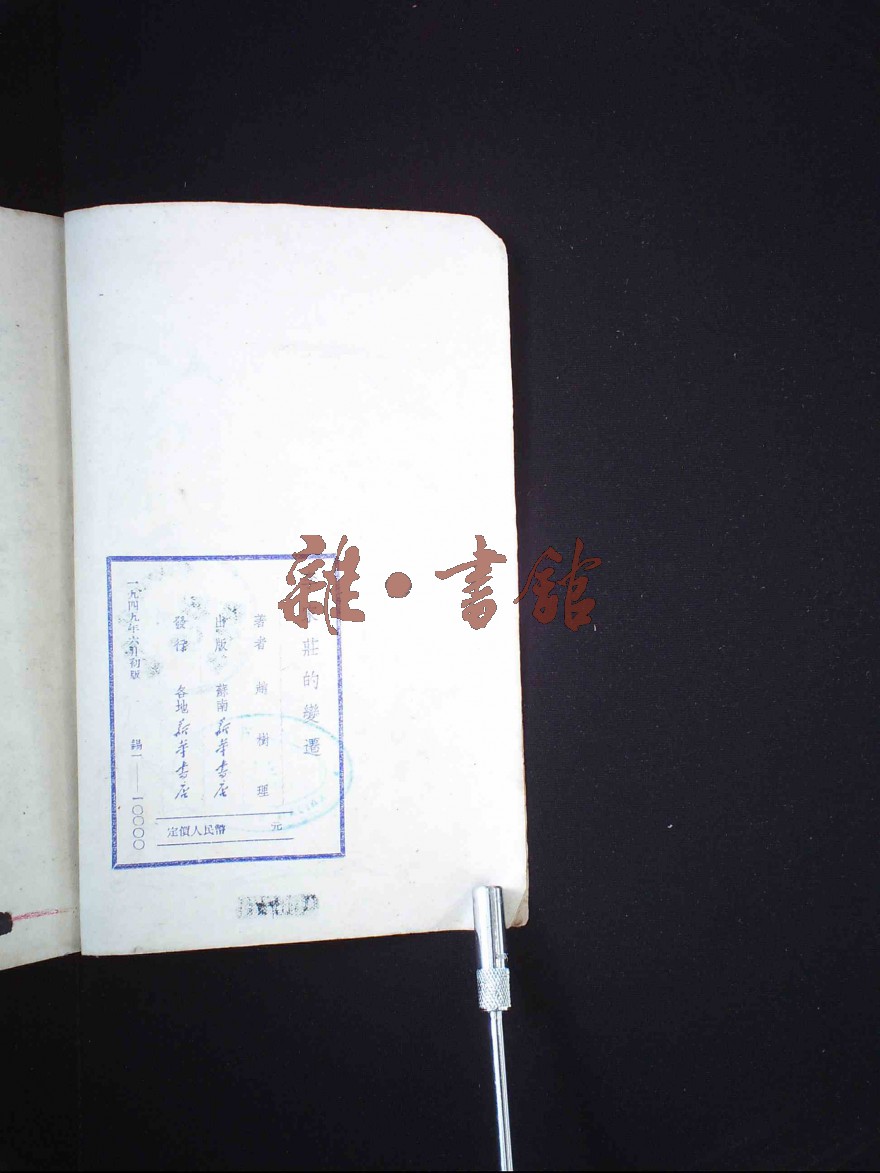 雜·書館
家莊的變遷
著者 趙樹理
出版 蘇南新華書店
發行 各地新華書店
一九四九年六月初版
錫一——一〇〇〇〇
定價人民幣 元